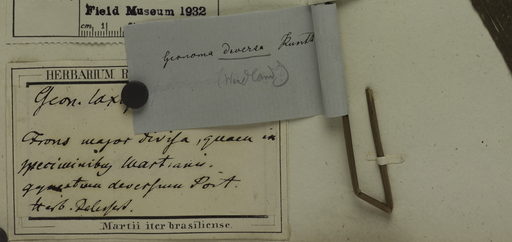 Field Museum 1932
cm 1
Geonoma deversa Kunth
(Wendland)
HERBARIUM R
Geon. laxi
Frons major divisa, quam in
speciminibus Martianis.
gynestum deversum Poit.
Herb. Delessert.
Martii iter brasiliense.